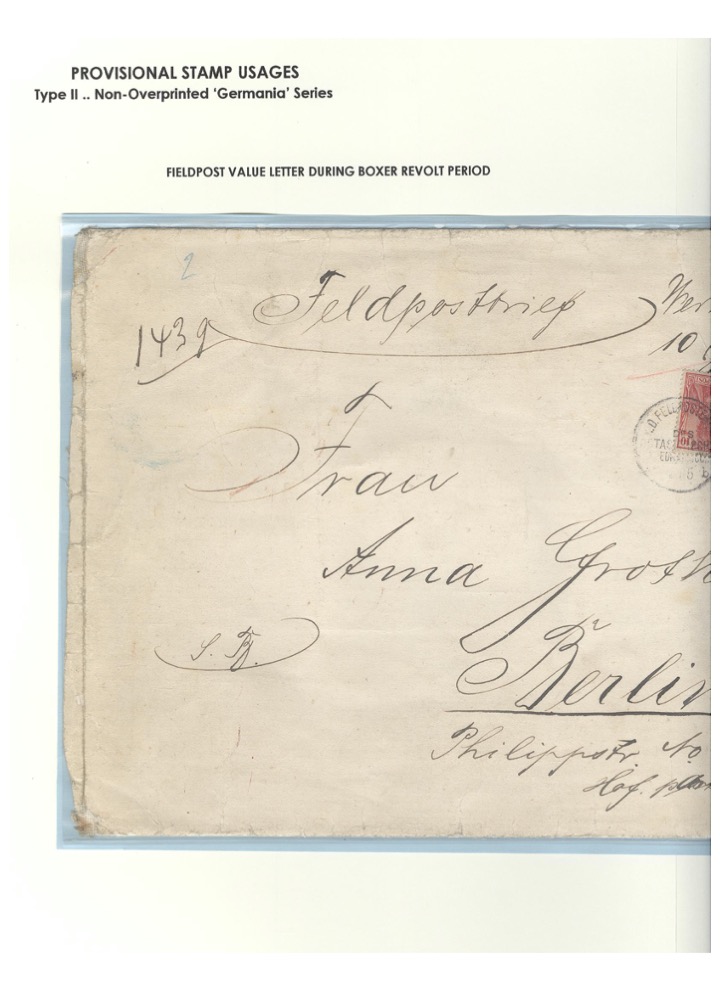 PROVISIONAL STAMP USAGES
Type II .. Non-Overprinted 'Germania' Series
FIELDPOST VALUE LETTER DURING BOXER REVOLT PERIOD
2
Feldpostbrief
143g
10
Frau
Anna
S. B.
Berlin
Philippstr. No.
Hof.